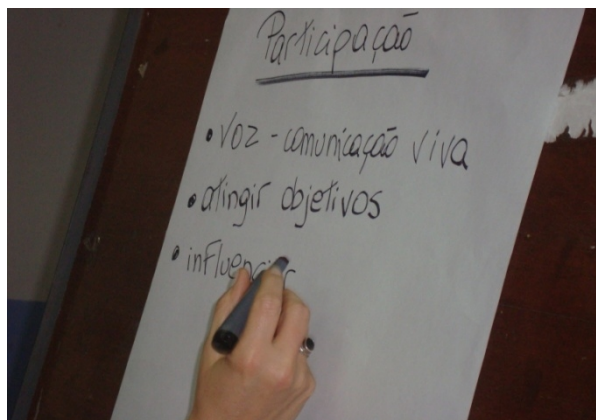 Participação
• voz - comunicação viva
• atingir objetivos
• influenciar